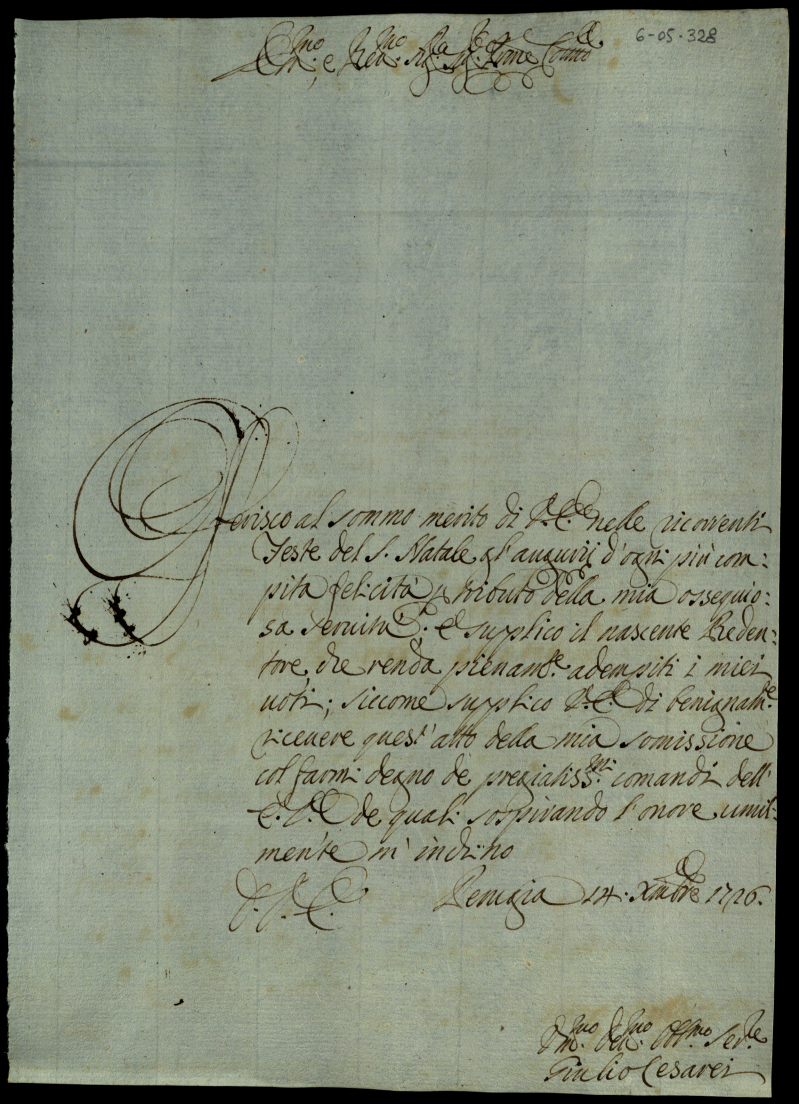 6-05-328
Em.mo e Rev.mo Sig.r Sig.r Prone Colmo
Offerisco al sommo merito di V.E. nelle ricorrenti
Feste del S. Natale gl'augurij d'ogni più com=
pita felicità p tributo della mia ossequio=
sa servitù; e supplico il nascente Reden=
tore, che renda pienam.te adempiti i miei
voti; siccome supplico V.E. di benignam.te
ricevere quest'atto della mia somissione
col farmi degno de pregiatiss.mi comandi dell'
E.V. de quali sospirando l'onore umil=
mente m'inchino
D.V.E. Perugia 14. Xmbre 1726.
Um.mo Dev.mo Obb.mo Ser.re
Giulio Cesarei